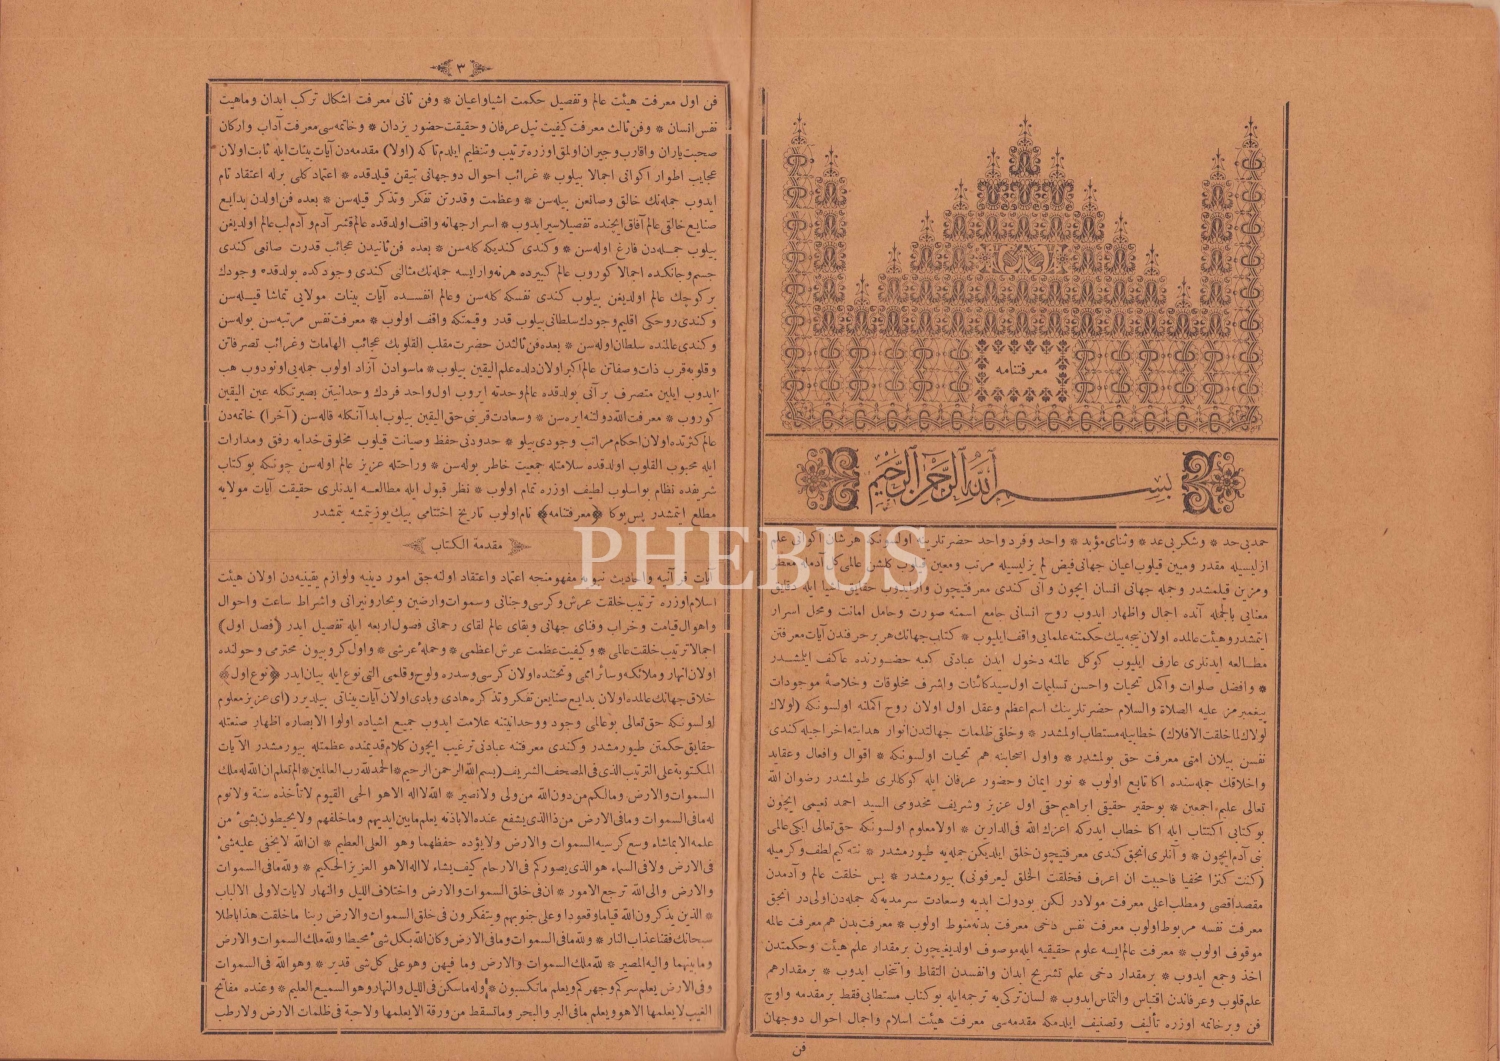 معرفتنامه
بسم الله الرحمن الرحيم
حمد بی حد * وشکر بی عد * وثنای مؤبد * واحد وفرد واحد حضرتلرینه اولسونکه هر شان اکوانی علم
ازلیسیله مقدر ومبین قیلوب اعیان جهانی فیض لم یزلیسیله مرتب ومعین قیلوب کلشن عالمی کل آدمله معطر
ومزین قیلمشدر وجمله جهانی انسان ایچون وآنی کندی معرفتیچون وار ایدوب حقایق اشیا ایله دقایق
معنایی بالجمله آنده اجمال واظهار ایدوب روح انسانی جامع اسمنه صورت وحامل امانت ومحل اسرار
ایتمشدر وهیئت عالمده اولان نیجه بیك حکمتنه علمایی واقف ایلیوب * کتاب جهانك هر بر حرفندن آیات معرفتن
مطالعه ایدنلری عارف ایلیوب کوکل عالمنه دخول ایدن عبادنی کعبه حضورنده عاکف ایلشدر
* وافضل صلوات واکمل تحیات واحسن تسلیمات اول سید کائنات واشرف مخلوقات وخلاصۀ موجودات
پیغمبرمز علیه الصلاة والسلام حضرتلرینك اسم اعظم وعقل اول اولان روح اکملنه اولسونکه (لولاك
لولاك لما خلقت الافلاك) خطابیله مستطاب اولمشدر * وخلقی ظلمات جهالتدن انوار هدایته اخراجیله کندی
نفسن بیلان امتی معرفت حق بولمشدر * واول اصحابنه هم تحیات اولسونکه * اقوال وافعال وعقاید
واخلاقك جمله سنده اکا تابع اولوب * نور ایمان وحضور عرفان ایله کوکللری طولمشدر رضوان الله
تعالی علیهم اجمعین * بو حقیر حقیقی ابراهیم حقی اول عزیز وشریف مخدومی السید احمد نعیمی ایچون
بو کتابی اکتتاب ایله اکا خطاب ایدرکه اعزك الله فی الدارین * اولا معلوم اولسونکه حق تعالی ایکی عالمی
بنی آدم ایچون * وآنلری انجق کندی معرفتیچون خلق ایلدیکن جمله یه طیورمشدر * نته کیم لطف وکرمیله
(کنت کنزا مخفیا فاحببت ان اعرف فخلقت الخلق لیعرفونی) بیورمشدر * پس خلقت عالم وآدمدن
مقصد اقصی ومطلب اعلی معرفت مولادر لکن بو دولت ابدیه وسعادت سرمدیه که جمله دن اولی در انجق
معرفت نفسه مربوط اولوب معرفت نفس دخی معرفت بدنه منوط اولوب * معرفت بدن هم معرفت عالمه
موقوف اولوب * معرفت عالم ایسه علوم حقیقیه ایله موصوف اولدیغیچون بر مقدار علم هیئت وحکمتدن
اخذ وجمع ایدوب * بر مقدار دخی علم تشریح ابدان وانفسدن التقاط وانتخاب ایدوب * بر مقدار هم
علم قلوب وعرفاندن اقتباس والتماس ایدوب * لسان ترکی یه ترجمه ایله بو کتاب مستطابی فقط بر مقدمه واوچ
فن وبر خاتمه اوزره تألیف وتصنیف ایلدمکه مقدمه سی معرفت هیئت اسلام واجمال احوال دو جهان
فن
٣
فن اول معرفت هیئت عالم وتفصیل حکمت اشیا واعیان * وفن ثانی معرفت اشکال ترکب ابدان وماهیت
نفس انسان * وفن ثالث معرفت کیفیت نیل عرفان وحقیقت حضور یزدان * وخاتمه سی معرفت آداب وارکان
صحبت یاران واقارب وجیران اولمق اوزره ترتیب وتنظیم ایلدم تا که (اولا) مقدمه دن آیات بینات ایله ثابت اولان
عجایب اطوار اکوانی اجمالا بیلوب * غرائب احوال دو جهانی تیقن قیلدقده * اعتماد کلی برله اعتقاد تام
ایدوب جمله نك خالق وصانعن بیله سن * وعظمت وقدرتن تفکر وتذکر قیله سن * بعده فن اولدن بدایع
صنایع خالق عالم آفاق ایچنده تفصیلا سیر ایدوب * اسرار جهانه واقف اولدقده عالم قشر آدم وآدم لب عالم اولدیغن
بیلوب جمله دن فارغ اوله سن * وکندی کندیکه کله سن * بعده فن ثانیدن عجائب قدرت صانعی کندی
جسم وجانکده اجمالا کوروب عالم کبیرده هر نه وار ایسه جمله نك مثالنی کندی وجودکده بولدقده وجودك
بر کوچك عالم اولدیغن بیلوب کندی نفسکه کله سن وعالم انفسده آیات بینات مولایی تماشا قیله سن
وکندی روحکی اقلیم وجودك سلطانی بیلوب قدر وقیمتکه واقف اولوب * معرفت نفس مرتبه سن بوله سن
وکندی عالمنده سلطان اوله سن * بعده فن ثالثدن حضرت مقلب القلوبك عجائب الهامات وغرائب تصرفاتن
وقلوبه قرب ذات وصفاتن عالم اکبر اولان دلده علم الیقین بیلوب * ماسوادن آزاد اولوب جمله یی اونودوب هب
ایدوب ایلین متصرف بر آنی بولدقده عالم وحدته ایروب اول واحد فردك وحدانیتن بصیرتکله عین الیقین
کوروب * معرفت الله دولتنه ایره سن * وسعادت قربنی حق الیقین بیلوب ابدا آنکله قاله سن (آخرا) خاتمه دن
عالم کثرتده اولان احکام مراتب وجودی بیلوب * حدودنی حفظ وصیانت قیلوب مخلوق خدایه رفق ومدارات
ایله محبوب القلوب اولدقده سلامتله جمعیت خاطر بوله سن * وراحتله عزیز عالم اوله سن چونکه بو کتاب
شریفده نظام بو اسلوب لطیف اوزره تمام اولوب * نظر قبول ایله مطالعه ایدنلری حقیقت آیات مولایه
مطلع ایتمشدر پس بوکا ﴿معرفتنامه﴾ نام اولوب تاریخ اختتامی بیك یوز یتمشه یتمشدر
مقدمة الکتاب
آیات قرآنیه واحادیث نبویه مفهومنجه اعتماد واعتقاد اولنه جق امور دینیه ولوازم یقینیه دن اولان هیئت
اسلام اوزره ترتیب خلقت عرش وکرسی وجنانی وسموات وارضین وبحار ونیرانی واشراط ساعت واحوال
واهوال قیامت وخراب وفنای جهانی وبقای عالم لقای رحمانی فصول اربعه ایله تفصیل ایدر (فصل اول)
اجمالا ترتیب خلقت عالمی * وکیفیت عظمت عرش اعظمی * وحملۀ عرشی * واول کروبیون محترمی وحولنده
اولان انهار وملائکه وسائر اممی وتحتنده اولان کرسی وسدره ولوح وقلمی التی نوع ایله بیان ایدر ﴿نوع اول﴾
خلاق جهانك عالمده اولان بدایع صنایعن تفکر وتذکره هادی وبادی اولان آیات بیناتی بیلدیرر (ای عزیز معلوم
اولسونکه حق تعالی بو عالمی وجود ووحدانیتنه علامت ایدوب جمیع اشیاده اولوا الابصاره اظهار صنعتله
حقایق حکمتن طیورمشدر وکندی معرفتنه عبادنی ترغیب ایچون کلام قدیمنده عظمتله بیورمشدر الآیات
المکتوبة علی الترتیب الذی فی المصحف الشریف (بسم الله الرحمن الرحیم * الحمد لله رب العالمین * الم تعلم ان الله له ملك
السموات والارض ومالکم من دون الله من ولی ولا نصیر * الله لا اله الا هو الحی القیوم لا تأخذه سنة ولا نوم
له ما فی السموات وما فی الارض من ذا الذی یشفع عنده الا باذنه یعلم ما بین ایدیهم وما خلفهم ولا یحیطون بشیٔ من
علمه الا بما شاء وسع کرسیه السموات والارض ولا یؤده حفظهما وهو العلی العظیم * ان الله لا یخفی علیه شیٔ
فی الارض ولا فی السماء هو الذی یصورکم فی الارحام کیف یشاء لا اله الا هو العزیز الحکیم * ولله ما فی السموات
والارض والی الله ترجع الامور * ان فی خلق السموات والارض واختلاف اللیل والنهار لآیات لاولی الالباب
* الذین یذکرون الله قیاما وقعودا وعلی جنوبهم ویتفکرون فی خلق السموات والارض ربنا ما خلقت هذا باطلا
سبحانك فقنا عذاب النار * ولله ما فی السموات وما فی الارض وکان الله بکل شیٔ محیطا ولله ملك السموات والارض
وما بینهما والیه المصیر * لله ملك السموات والارض وما فیهن وهو علی کل شی قدیر * وهو الله فی السموات
وفی الارض یعلم سرکم وجهرکم ویعلم ما تکسبون * وله ما سکن فی اللیل والنهار وهو السمیع العلیم * وعنده مفاتح
الغیب لا یعلمها الا هو ویعلم ما فی البر والبحر وما تسقط من ورقة الا یعلمها ولا حبة فی ظلمات الارض ولا رطب
PHEBUS